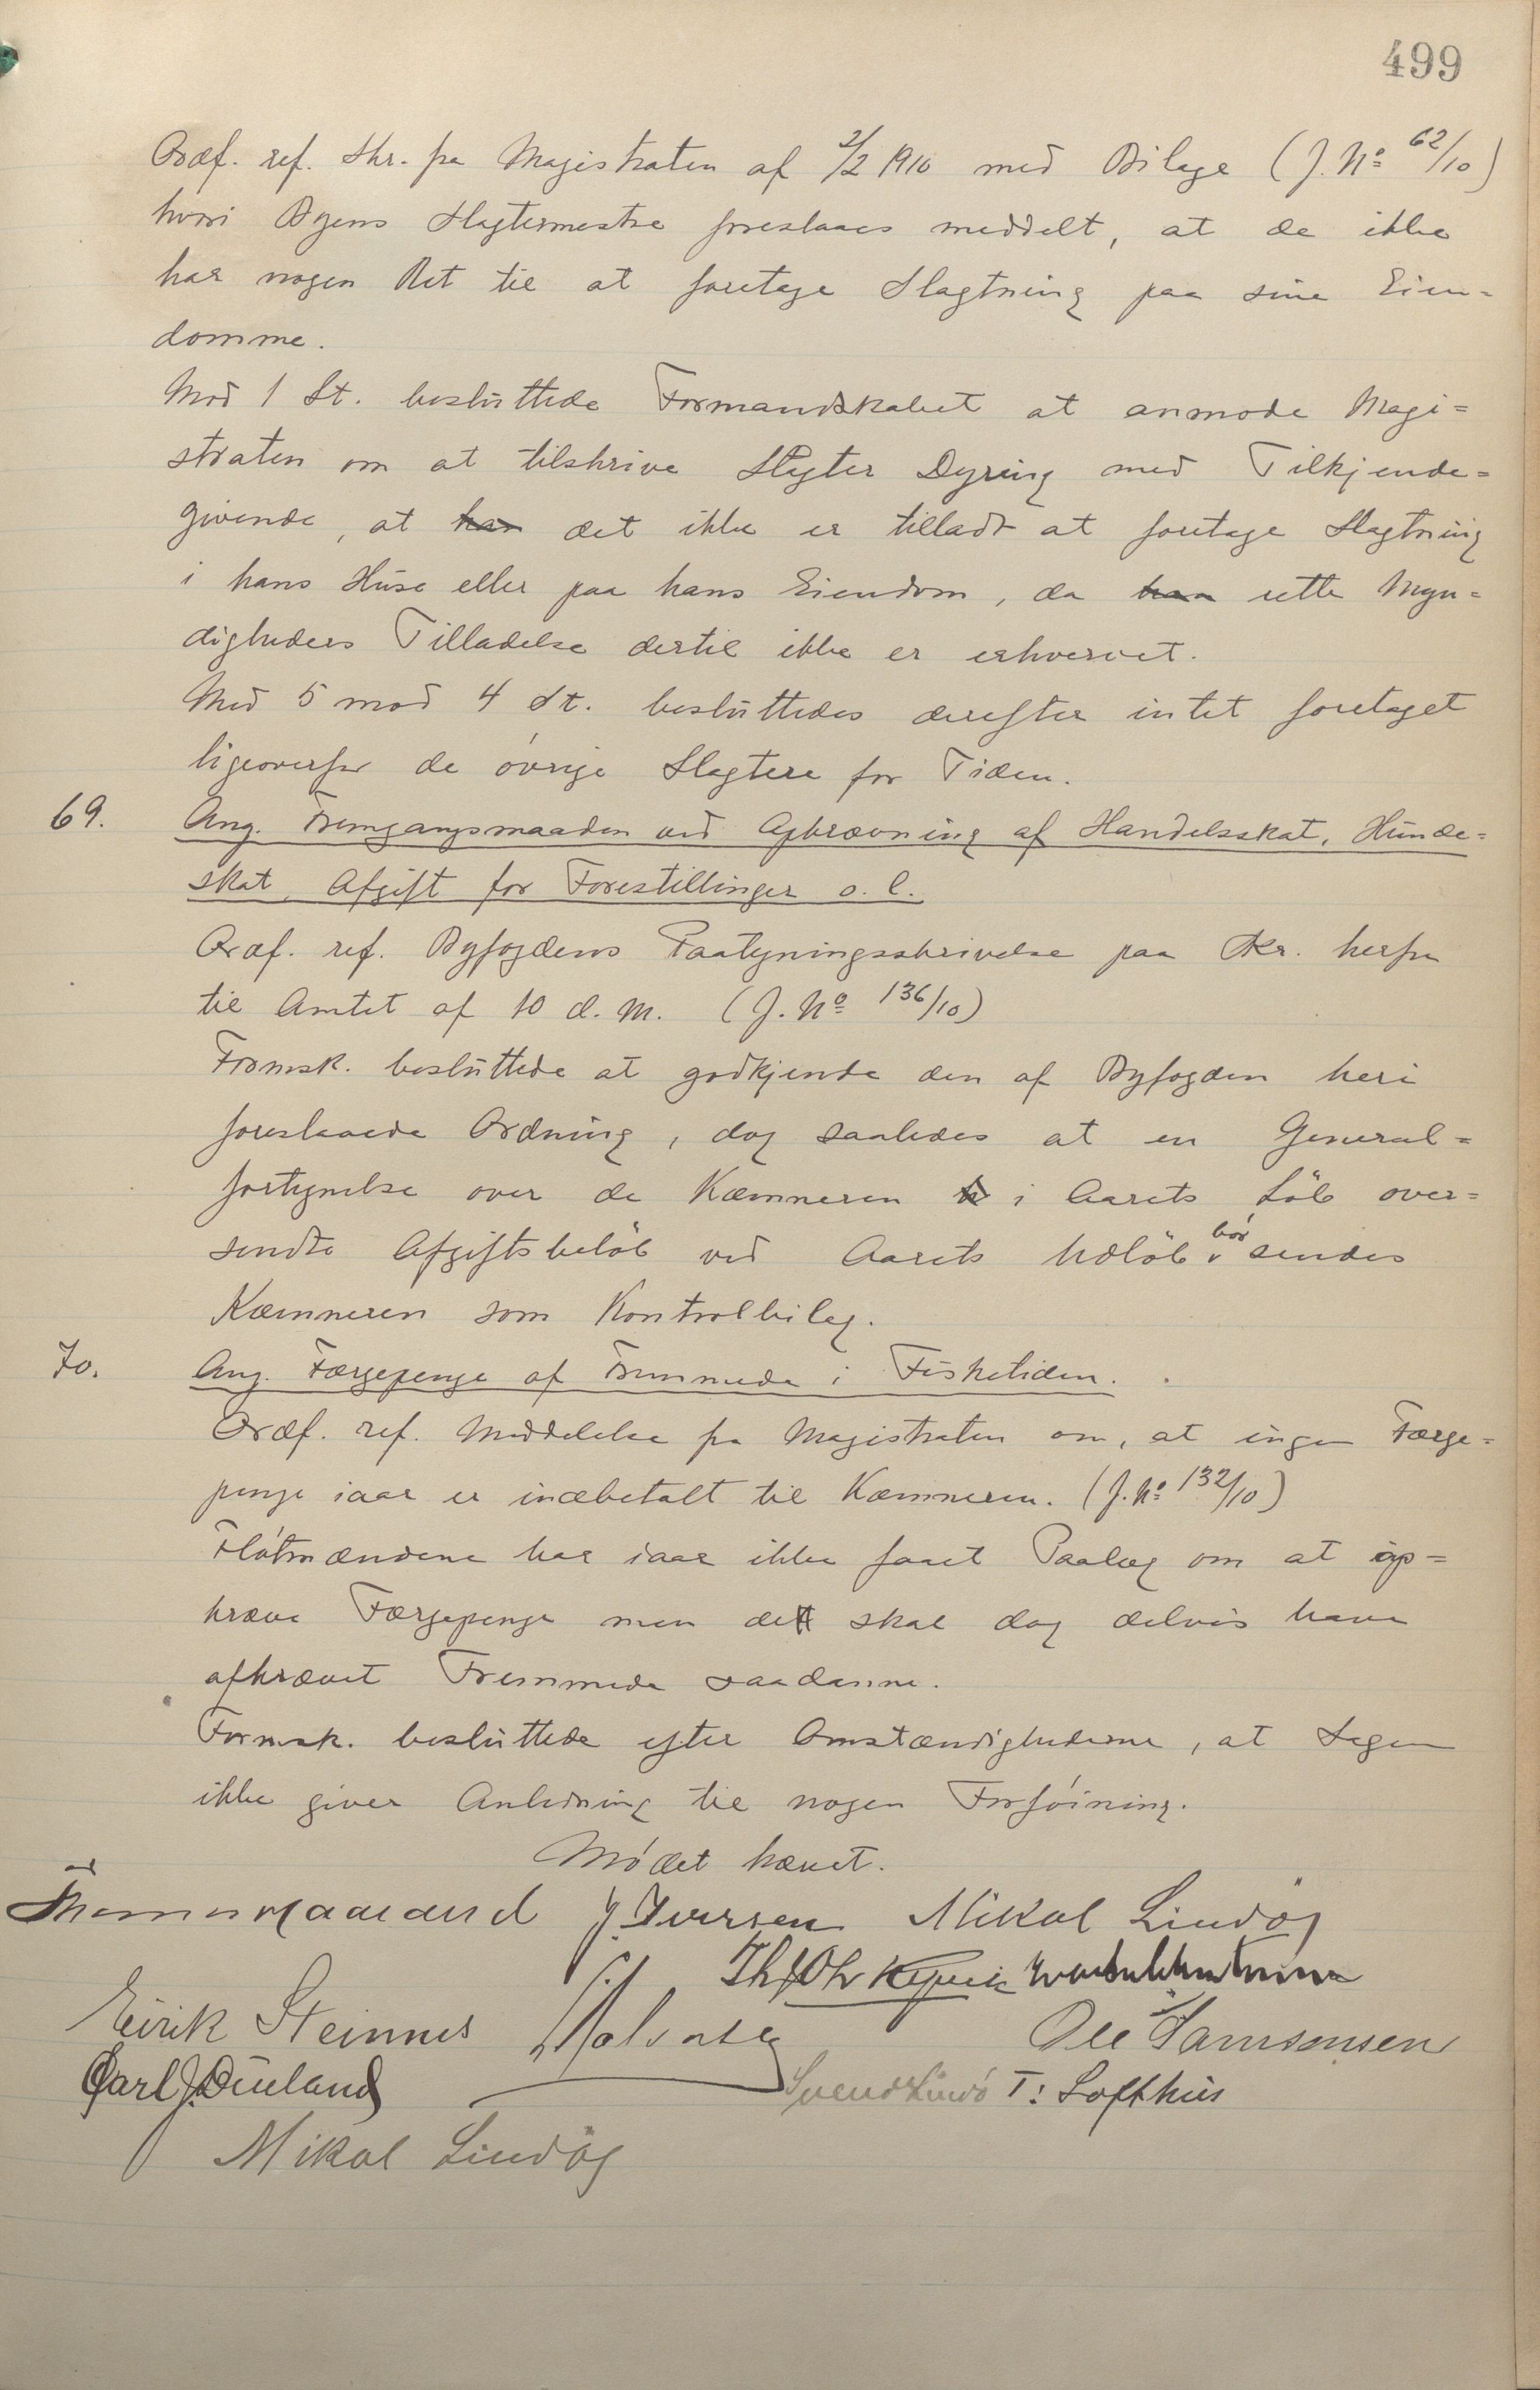 499
Ordf. ref. Skr. fra Magistraten af 2/2 1910 med Bilage (J. No 62/10)
hvori Byens Slagtermestre foreslaaes meddelt, at de ikke
har nogen Ret til at foretage Slagtning paa sine Eien=
domme.
Mod 1 St. besluttede Formandskabet at anmode Magi=
straten om at tilskrive Slagter Dyring med Tilkjende=
givende, at han det ikke er tilladt at foretage Slagtning
i hans Huse eller paa hans Eiendom, da han rette Myn=
digheders Tilladelse dertil ikke er erhvervet.
Med 5 mod 4 St. besluttedes derefter intet foretaget
ligeoverfor de øvrige Slagtere for Tiden.
69. Ang. Fremgangsmaaden ved Opkrævning af Handelsskat, Hunde=
skat, Afgift for Forestillinger o. l.
Ordf. ref. Byfogdens Paategningsskrivelse paa Skr. herfra
til Amtet af 10 d. M. (J. No 136/10)
Formsk. besluttede at godkjende den af Byfogden heri
foreslaaede Ordning, dog saaledes at en General=
fortegnelse over de Kæmneren i Aarets Løb over=
sendte Afgiftsbeløb ved Aarets Udløb bør sendes
Kæmneren som Kontrolbilag.
70. Ang. Færgepenge af Fremmede i Fisketiden.
Ordf. ref. Meddelelse fra Magistraten om, at ingen Færge=
penge iaar er indbetalt til Kæmneren. (J. No 132/10)
Fløtmændene har iaar ikke faaet Paalæg om at op=
kræve Færgepenge men det skal dog delvis have
afkrævet Fremmede saadanne.
Formsk. besluttede efter Omstændighederne, at Sagen
ikke giver Anledning til nogen Forføining.
Mødet hævet.
J. Iversen Mikal Lindøy
Eirik Steinnes Ole Samsonsen
Carl J. Svend Lindø T: Lofthus
Mikal Lindøy